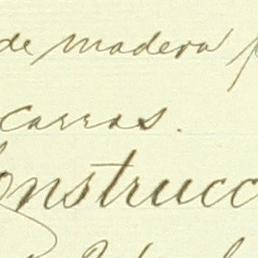 de madera p
carros.
onstrucc